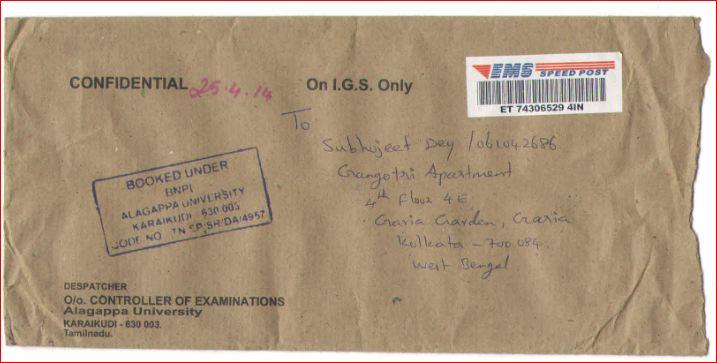 CONFIDENTIAL 25.4.14 On I.G.S. Only
EMS SPEED POST
ET 74306529 4IN
To
Subhujeet Dey /061042686
Gangotri Apartment
4th Floor 4E,
Garia Garden, Garia
Kolkata - 700 084.
West Bengal
BOOKED UNDER
BNPL
ALAGAPPA UNIVERSITY
KARAIKUDI - 630 003
CODE NO. TN/SP,SR/DA/4957
DESPATCHER
O/o. CONTROLLER OF EXAMINATIONS
Alagappa University
KARAIKUDI - 630 003.
Tamilnadu.